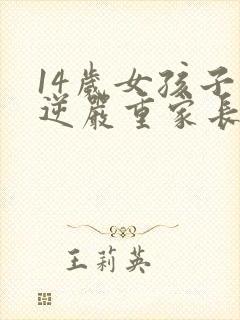 14歲女孩子
逆嚴重家長
王莉英